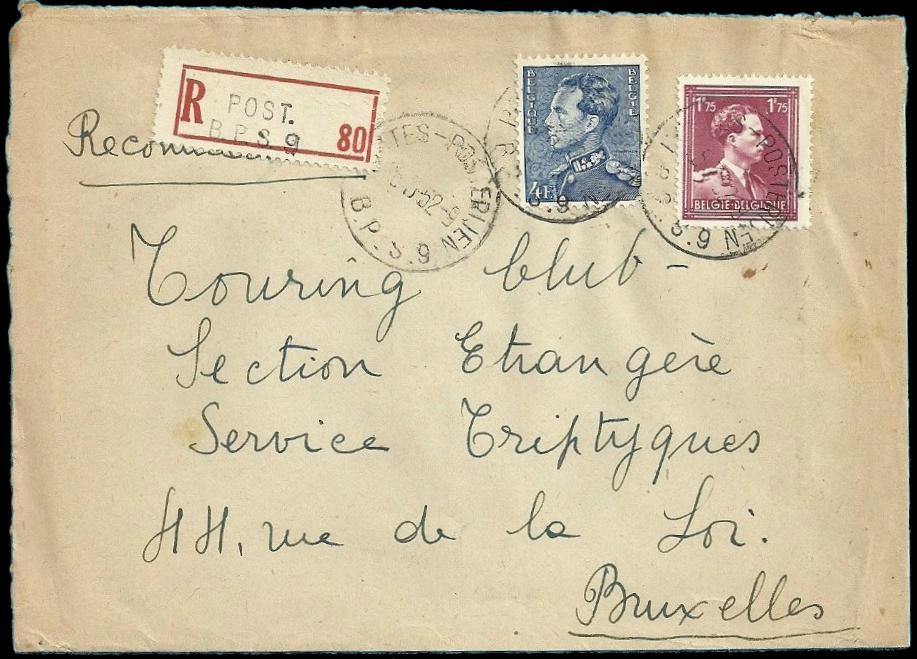 R POST.
B.P.S.9
80
BELGIQUE BELGIË
4F
1F75 1F75
BELGIE-BELGIQUE
POSTERIJEN
B.P.S.9
Touring Club-
Section Etrangère
Service Triptyques
44, rue de la Loi.
Bruxelles